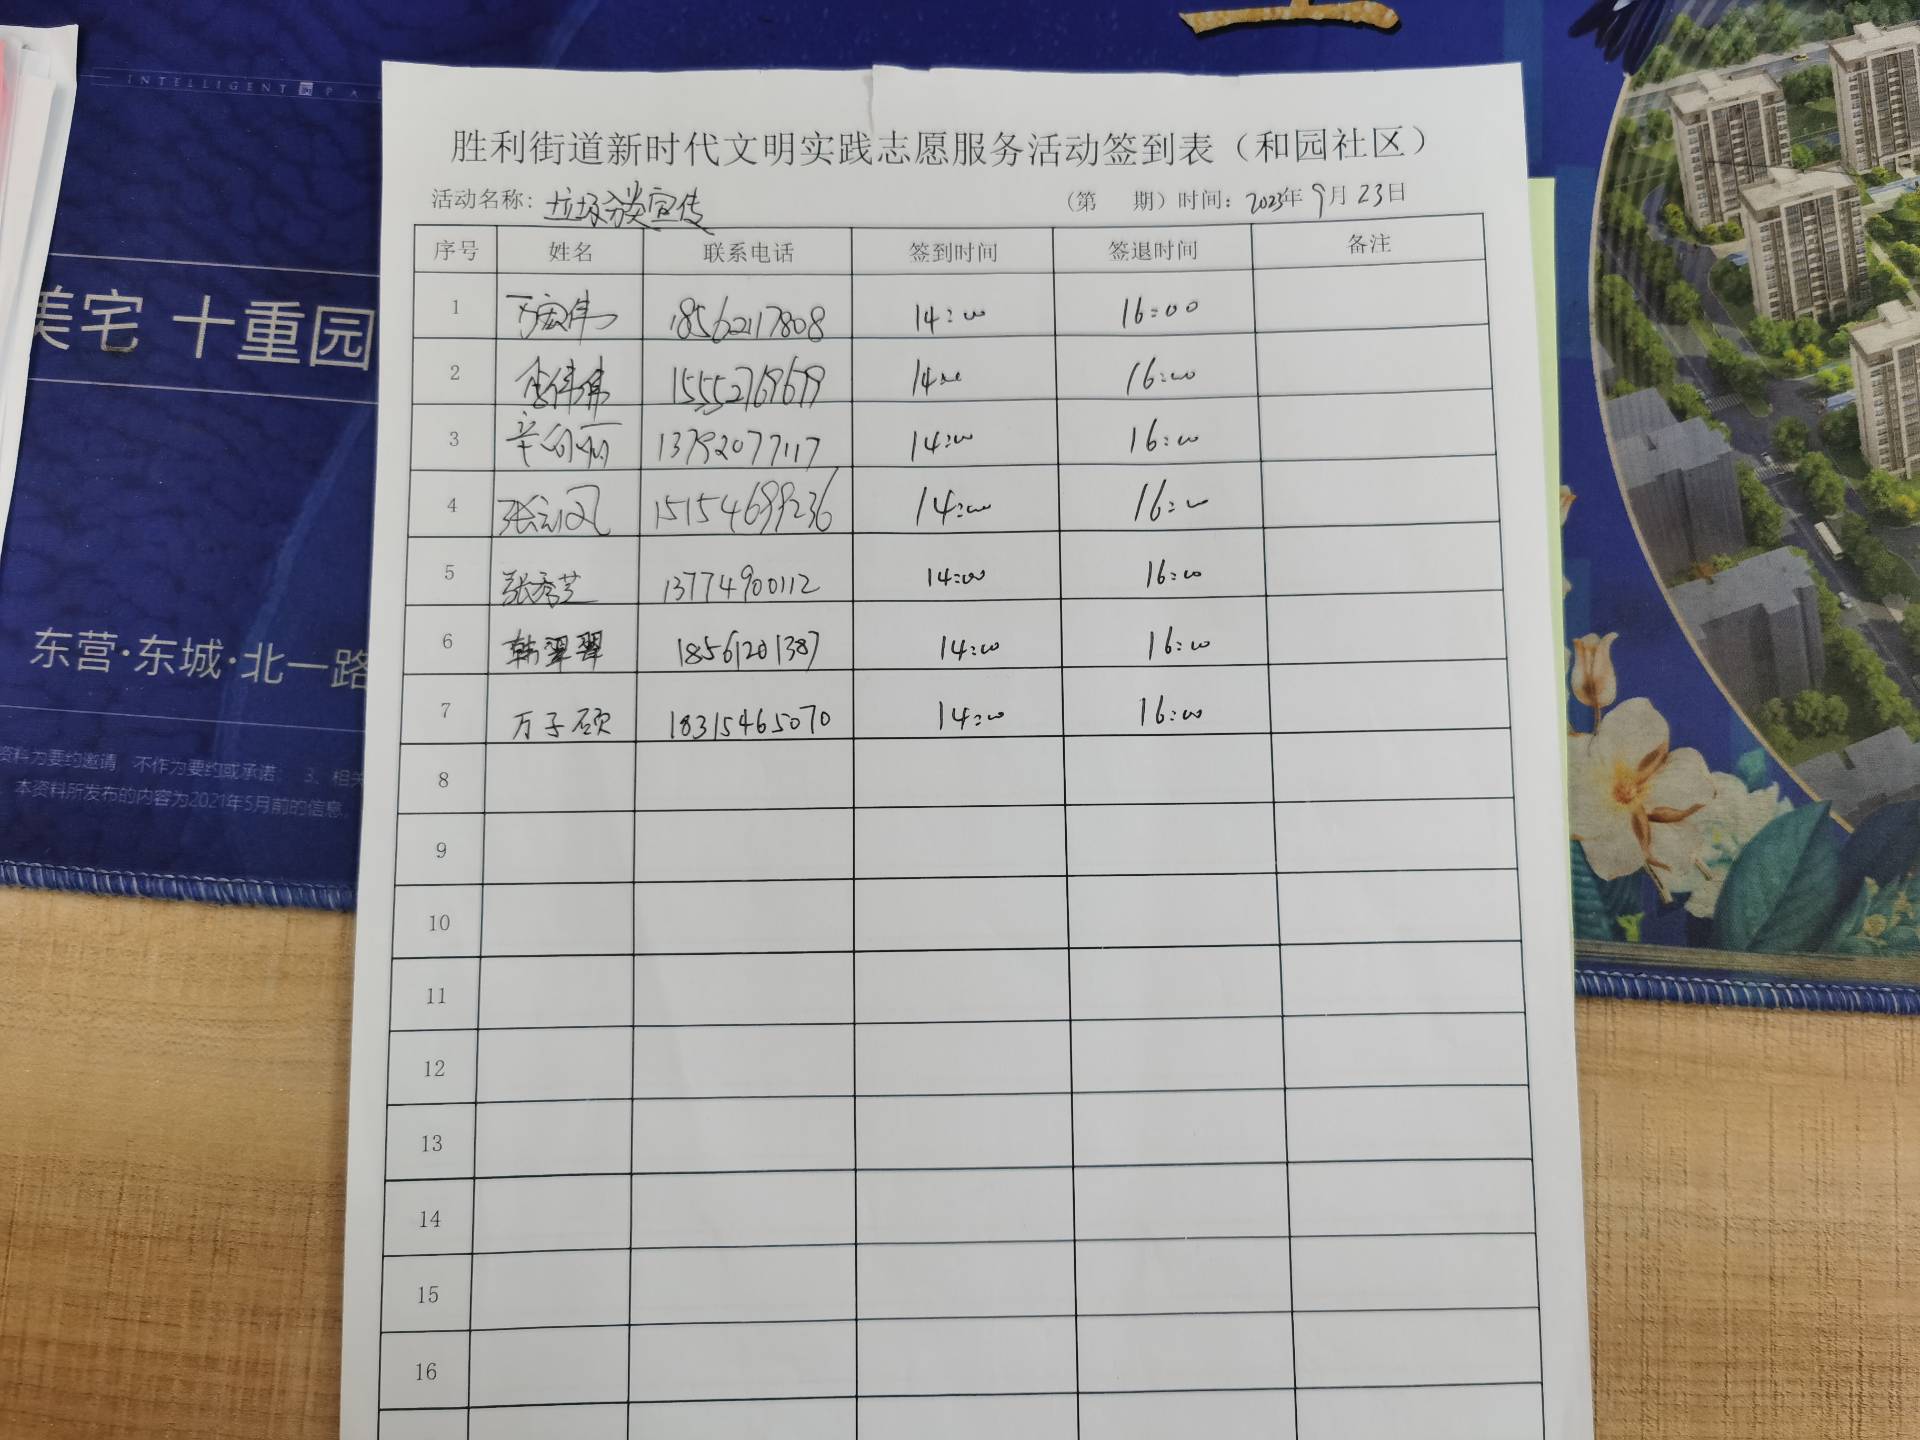 INTELLIGENT PAL
美宅 十重园
东营·东城·北一路
资料为要约邀请 不作为要约或承诺; 3、相关
本资料所发布的内容为2021年5月前的信息,
胜利街道新时代文明实践志愿服务活动签到表（和园社区）
活动名称: 垃圾分类宣传 （第 期）时间: 2023年9月23日
序号 姓名 联系电话 签到时间 签退时间 备注
1 万宏伟 18562117808 14:00 16:00
2 李伟伟 15552769679 14:00 16:00
3 辛 丽 13792077117 14:00 16:00
4 张 凤 15154699236 14:00 16:00
5 张秀芝 13774900112 14:00 16:00
6 韩翠翠 18561201387 14:00 16:00
7 万子硕 18315465070 14:00 16:00
8
9
10
11
12
13
14
15
16